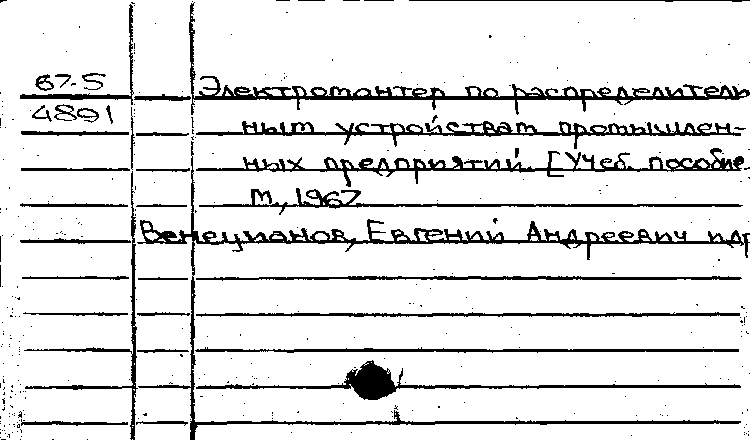 67-5
4891
Электромонтер по распределитель
ным устройствам промышлен-
ных предприятий. [Учеб. пособие.
М., 1967
Венецианов, Евгений Андреевич и др